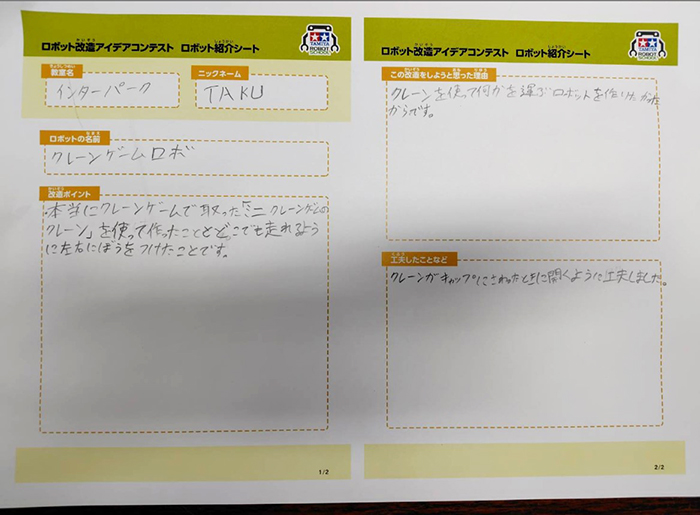 かいぞう
ロボット改造アイデアコンテスト ロボット紹介シート
しょうかい
TAMIYA
ROBOT
SCHOOL
きょうしつめい
教室名
インターパーク
ニックネーム
TAKU
なまえ
ロボットの名前
クレーンゲームロボ
かいぞう
改造ポイント
本当にクレーンゲームで取った「ミニクレーンゲームの
クレーン」を使って作ったこととどこでも走れるよう
に左右にぼうをつけたことです。
1/2
かいぞう
ロボット改造アイデアコンテスト ロボット紹介シート
しょうかい
TAMIYA
ROBOT
SCHOOL
かいぞう おも りゆう
この改造をしようと思った理由
クレーンを使って何かを運ぶロボットを作りたかった
からです。
くふう
工夫したことなど
クレーンがキャップにさわったときに開くように工夫しました。
2/2